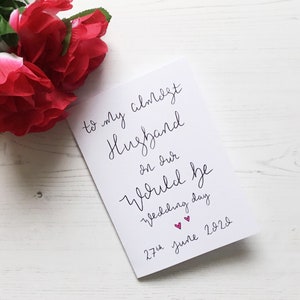 to my almost
Husband
on our
Would be
wedding day
27th June 2020